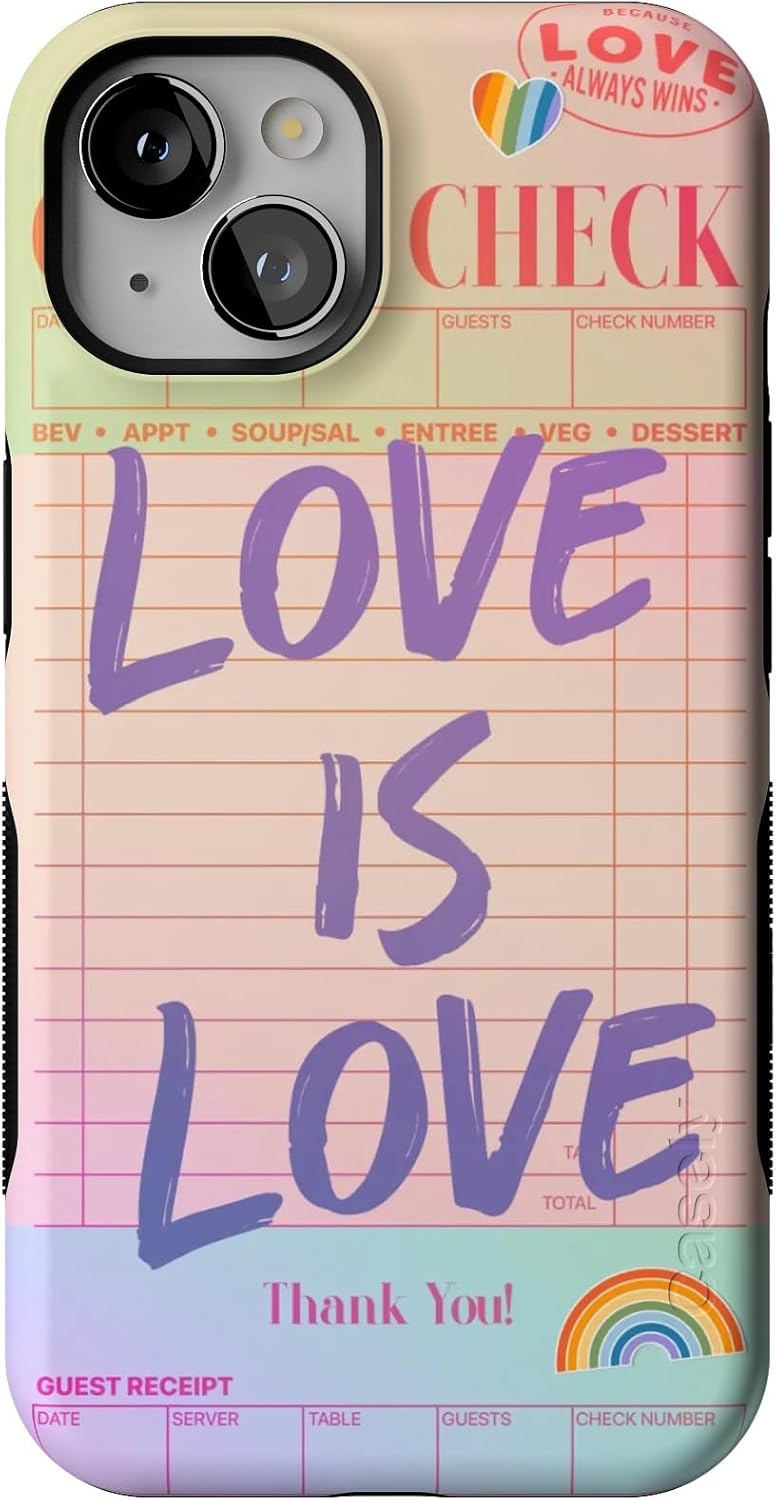 BECAUSE
LOVE
• ALWAYS WINS •
CHECK
GUESTS
CHECK NUMBER
BEV • APPT • SOUP/SAL • ENTREE • VEG • DESSERT
LOVE
IS
LOVE
TOTAL
Thank You!
casely
GUEST RECEIPT
DATE
SERVER
TABLE
GUESTS
CHECK NUMBER